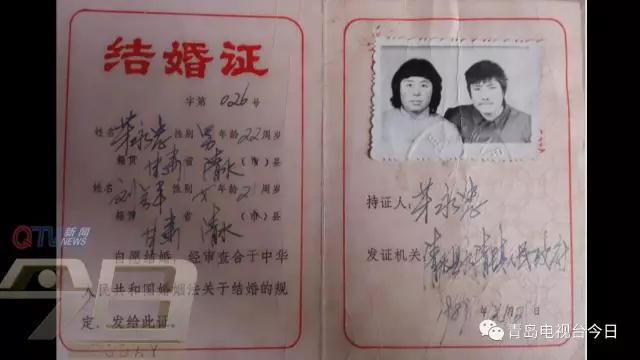 结婚证
字第 026 号
姓名 荣永忠 性别 男 年龄 22 周岁
籍贯 甘肃 省 清水 (市)县
姓名 性别 女 年龄 21 周岁
籍贯 甘肃 省 清水 (市)县
自愿结婚,经审查合于中华
人民共和国婚姻法关于结婚的规
定。发给此证。
持证人: 荣永忠
发证机关: 清水县 人民政府
年 月 日
QTV 新闻
NEWS
今日
青岛电视台今日